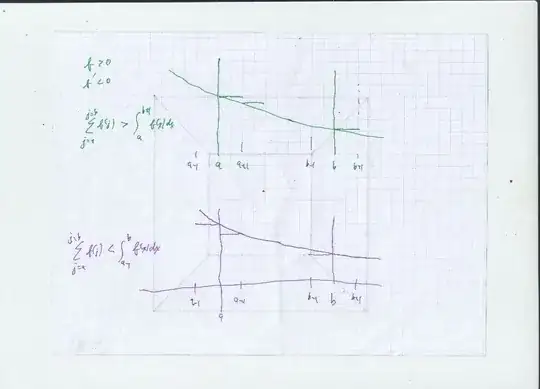 f ≥ 0
f' < 0
j=b
∑ f(j) > ∫ₐᵇ⁺¹ f(x)dx
j=a
a-1 a a+1 b-1 b b+1
j=b
∑ f(j) < ∫ₐ₋₁ᵇ f(x)dx
j=a
a-1 a a+1 b-1 b b+1